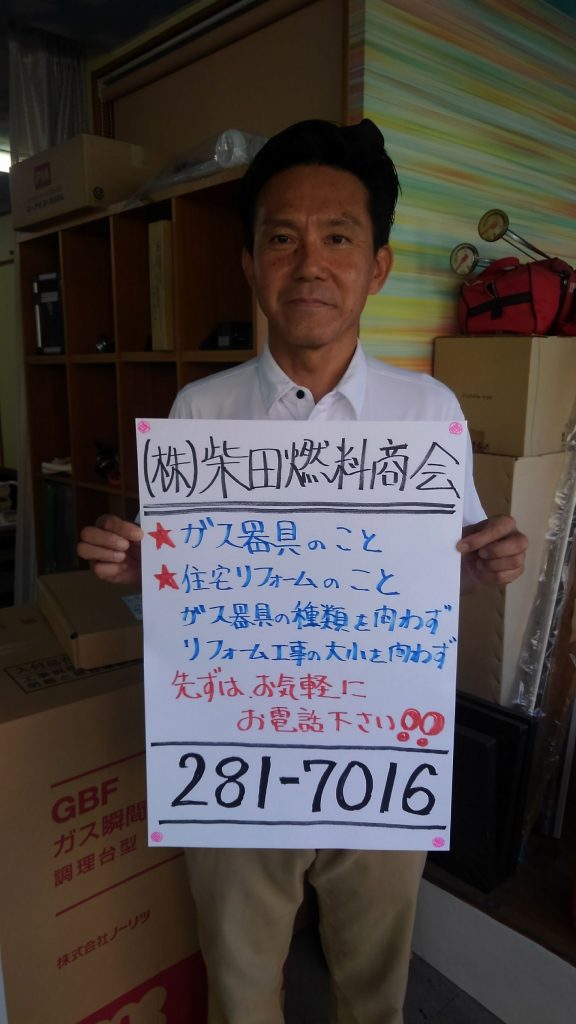 (株)柴田燃料商会
★ガス器具のこと
★住宅リフォームのこと
ガス器具の種類を向わず
リフォーム工事の大小を向わず
先ずはお気軽に
お電話下さい!!
281-7016
GBF
ガス瞬間
調理台型
株式会社ノーリツ